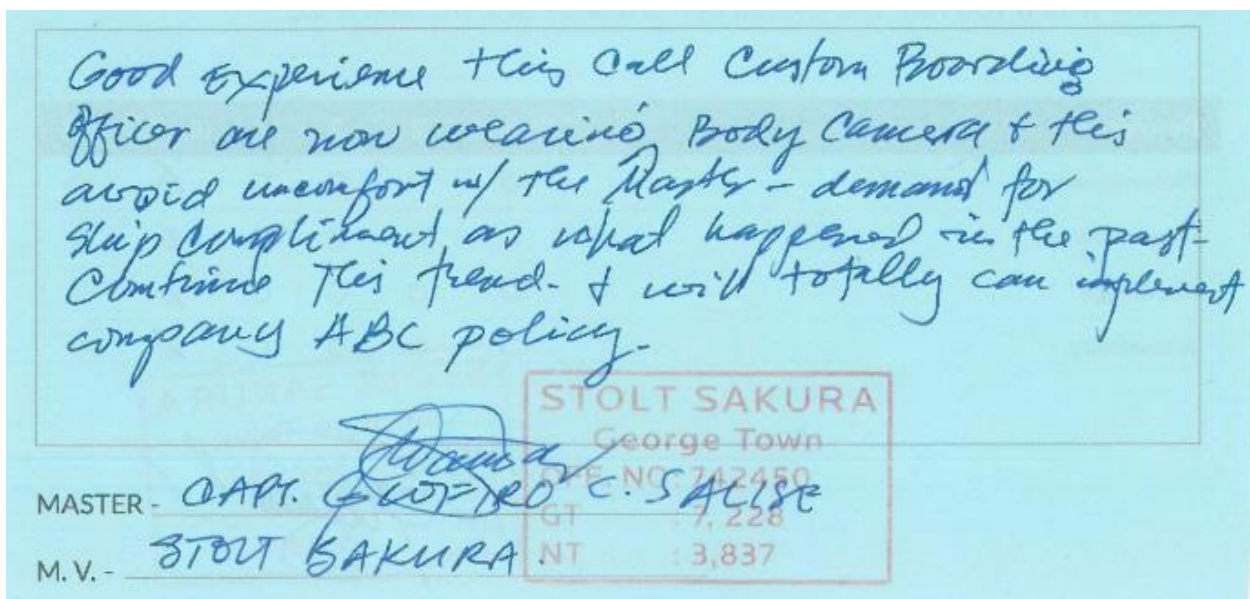 Good Experience this Call Custom Boarding
officer are now wearing Body Camera & this
avoid uncomfort w/ the Master - demand for
ship compliment as what happened in the past-
Continue This trend- & will totally can implement
company ABC policy-
STOLT SAKURA
George Town
OFF. NO: 742450
GT : 7, 228
NT : 3,837
MASTER - CAPT. C. SALISE
M. V. - STOLT SAKURA.